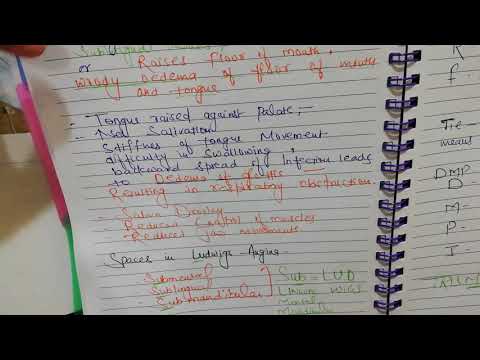 Sublingual
or Raises Floor of mouth,
woody oedema of floor of mouth
and tongue
- Tongue raised against Palate,-
- ↑sed Salivation
Stiffness of tongue Movement
difficulty in Swallowing,
backward spread of Infection leads
to Oedema of glottis
Resulting in respiratory obstruction.
- Saliva Drooling
Reduced Control of muscles
Reduced jaw movements
Spaces in Ludwigs Angina
- Submental
- Sublingual
- Submandibular
Sub = LUD
Tie-
means
DMP
D-
M-
P-
I